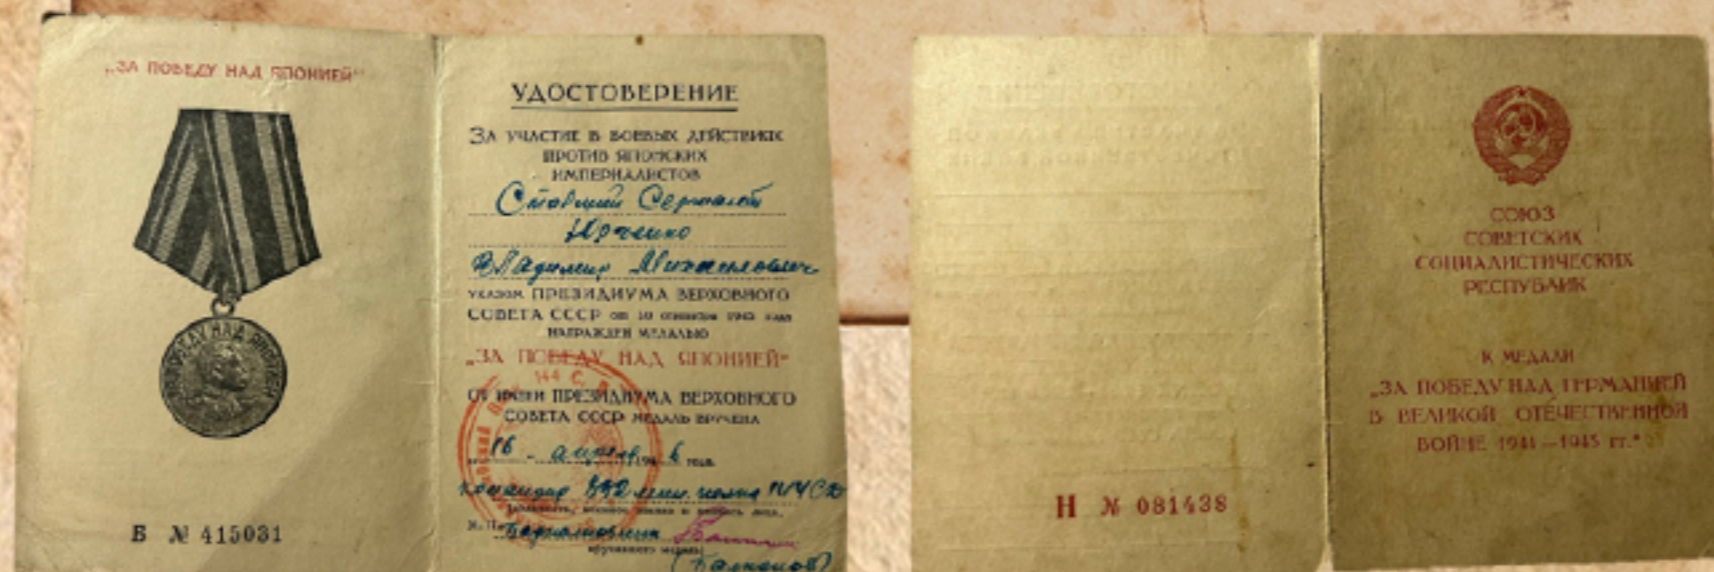 „ЗА ПОБЕДУ НАД ЯПОНИЕЙ"
ЗА ПОБЕДУ НАД ЯПОНИЕЙ
Б № 415031
УДОСТОВЕРЕНИЕ
ЗА УЧАСТИЕ В БОЕВЫХ ДЕЙСТВИЯХ
ПРОТИВ ЯПОНСКИХ
ИМПЕРИАЛИСТОВ
Старший Сержант
Юрченко
Владимир Михайлович
УКАЗОМ ПРЕЗИДИУМА ВЕРХОВНОГО
СОВЕТА СССР от 30 сентября 1945 года
НАГРАЖДЕН МЕДАЛЬЮ
„ЗА ПОБЕДУ НАД ЯПОНИЕЙ"
ОТ ИМЕНИ ПРЕЗИДИУМА ВЕРХОВНОГО
СОВЕТА СССР МЕДАЛЬ ВРУЧЕНА
16 апреля 194 6 года.
командир полка
М. П.
вручившего медаль
Н № 081438
СОЮЗ
СОВЕТСКИХ
СОЦИАЛИСТИЧЕСКИХ
РЕСПУБЛИК
К МЕДАЛИ
„ЗА ПОБЕДУ НАД ГЕРМАНИЕЙ
В ВЕЛИКОЙ ОТЕЧЕСТВЕННОЙ
ВОЙНЕ 1941—1945 гг."